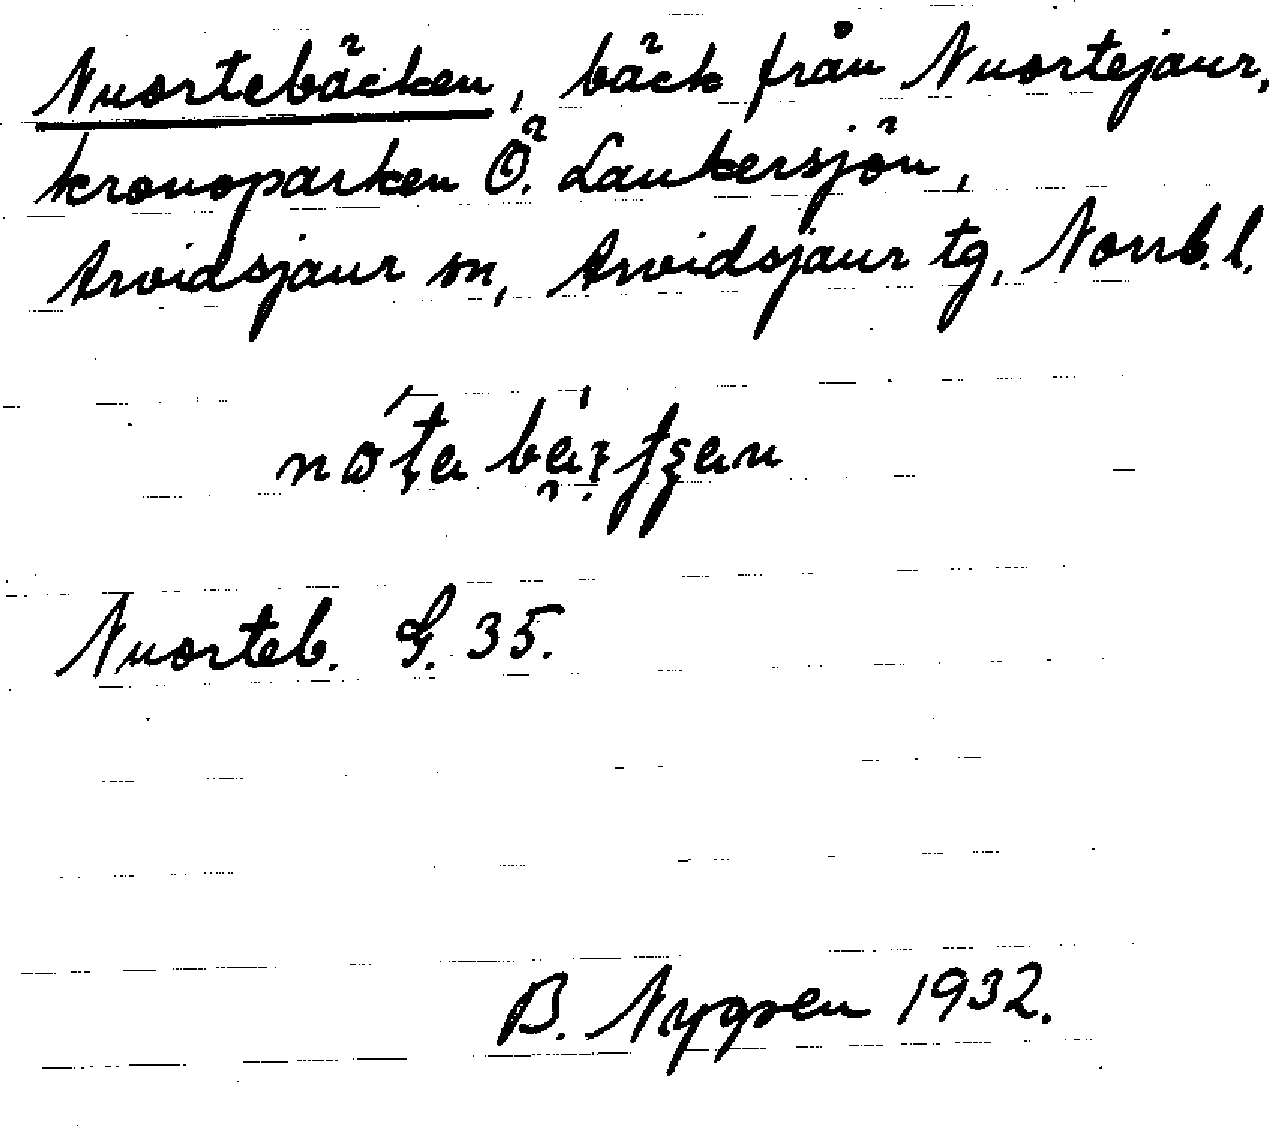 Nuortebäcken, bäck från Nuortejaur,
kronoparken Ö. Laukersjön,
Arvidsjaur sn, Arvidsjaur tg, Norrb. l.
Nuorteb. G. 35.
B. Nygren 1932.